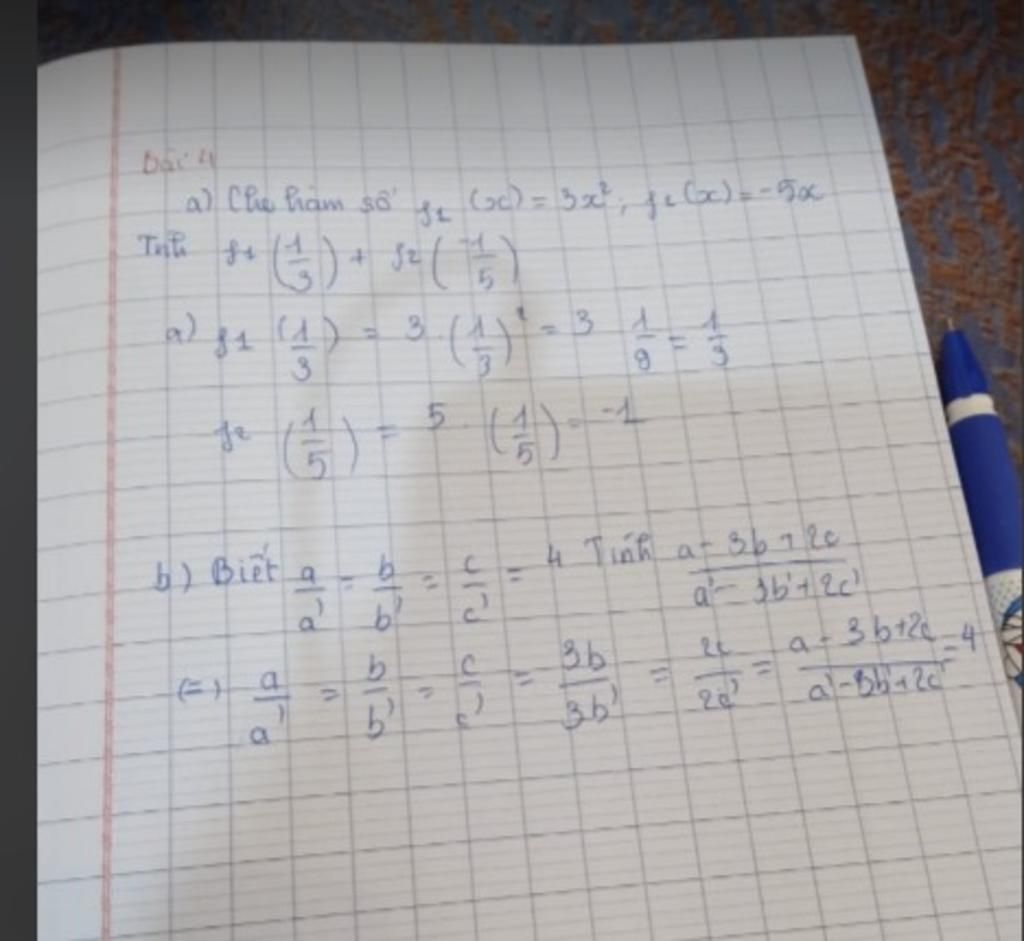 Bài 4
a) Cho hàm số f1 (x) = 3x²; f2(x) = -5x
Tính f1 (1/3) + f2 (-1/5)
a) f1 (1/3) = 3 . (1/3)² = 3 1/9 = 1/3
f2 (1/5) = 5 . (1/5) = -1
b) Biết a/a' = b/b' = c/c' = 4 Tính a - 3b + 2c / a' - 3b' + 2c'
(=) a/a' = b/b' = c/c' = 3b/3b' = 2c/2c' = a - 3b + 2c / a' - 3b' + 2c' = 4